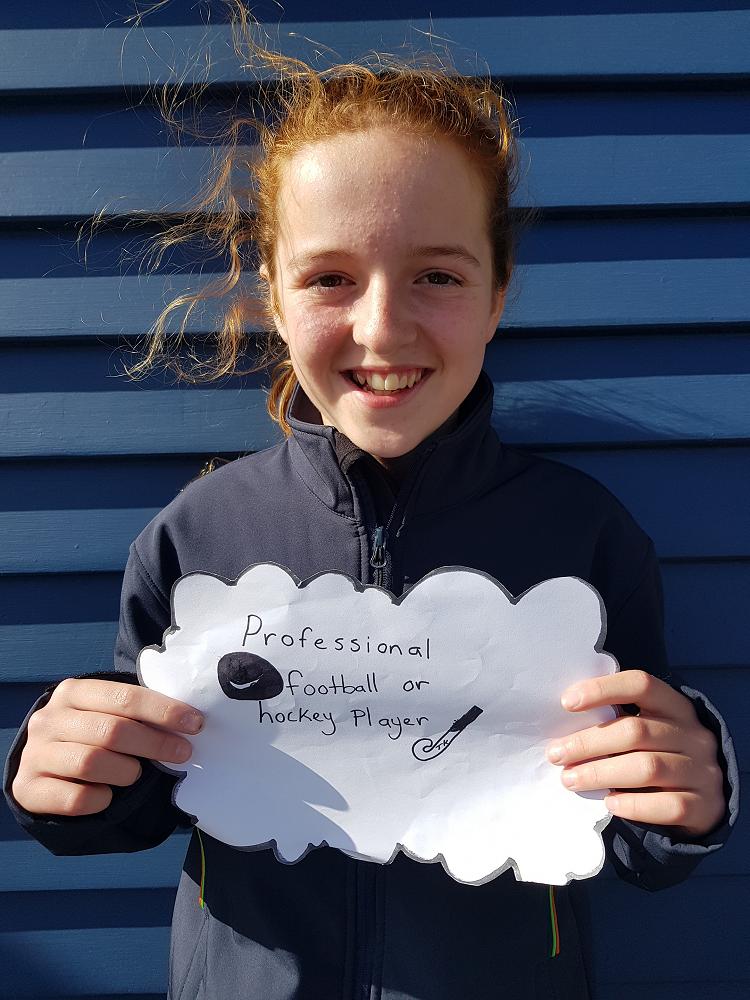 Professional
football or
hockey Player
TK